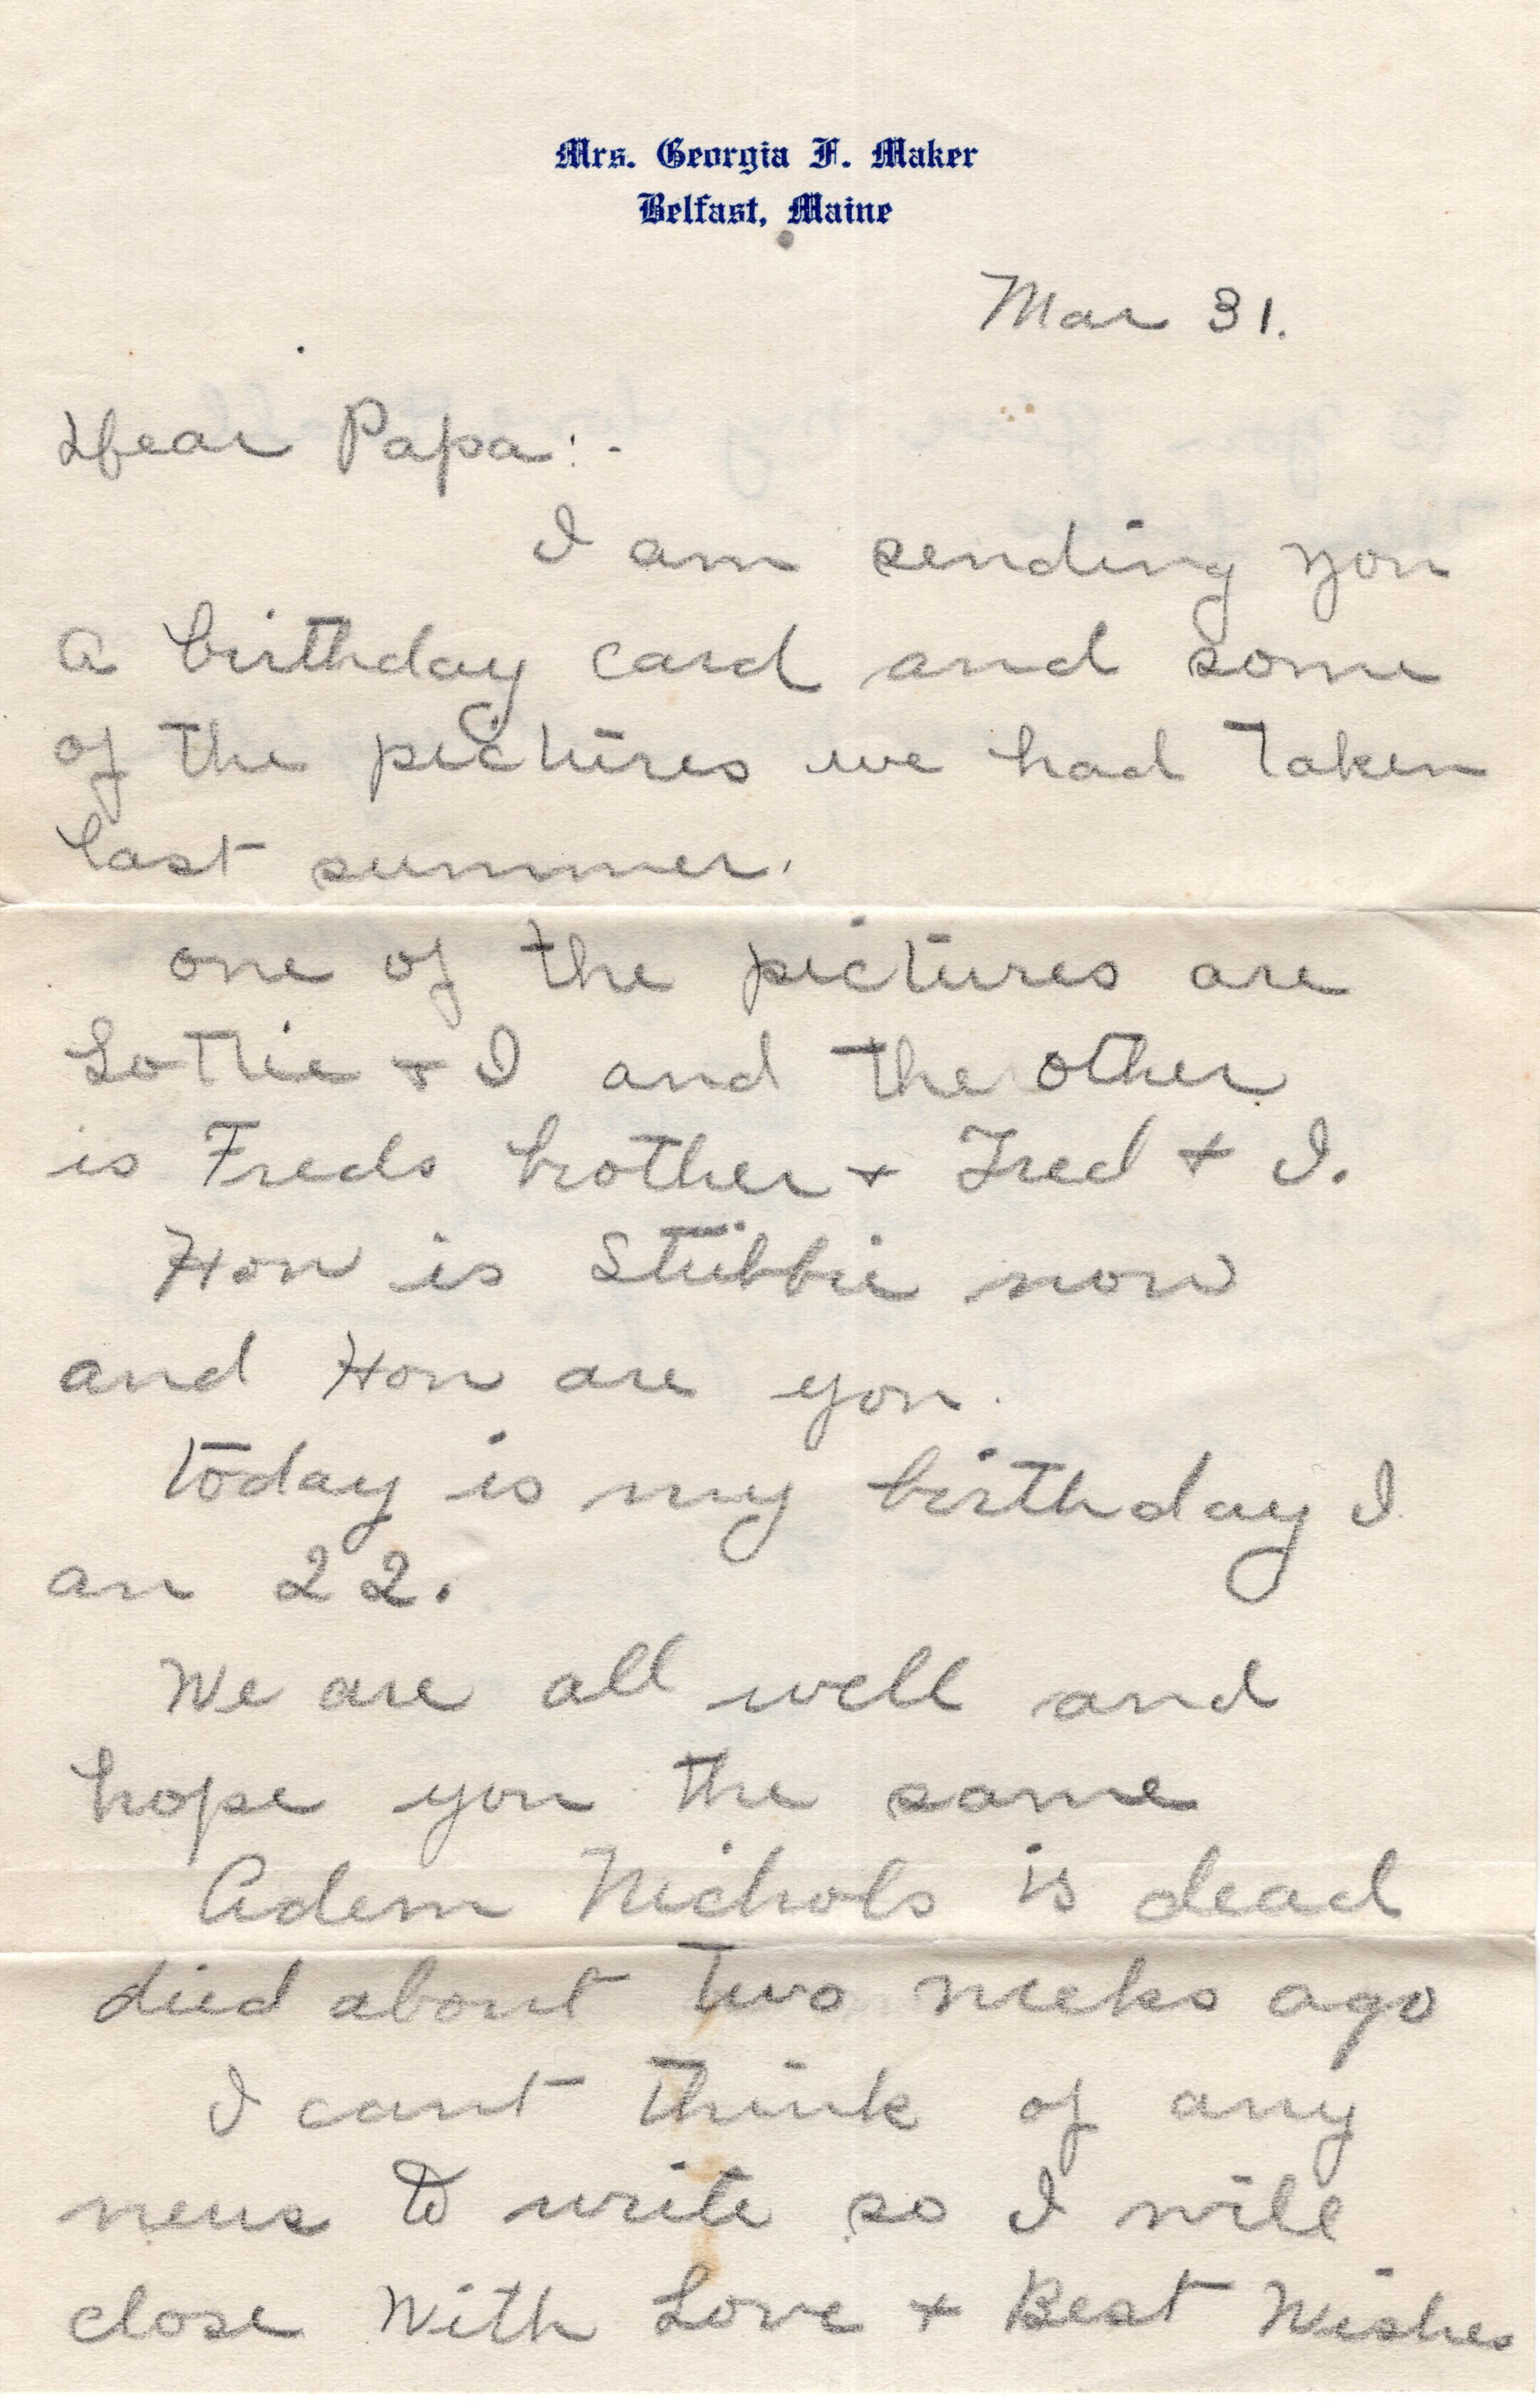 Mrs. Georgia F. Maker
Belfast, Maine
Mar 31.
Dear Papa:-
I am sending you
a birthday card and some
of the pictures we had taken
last summer.
one of the pictures are
Lottie + I and the other
is Freds brother + Fred + I.
How is Stubbie now
and How are you.
today is my birthday I
am 22.
We are all well and
hope you the same
Adem Nichols is dead
died about two weeks ago
I cant think of any
news to write so I will
close With Love + Best Wishes